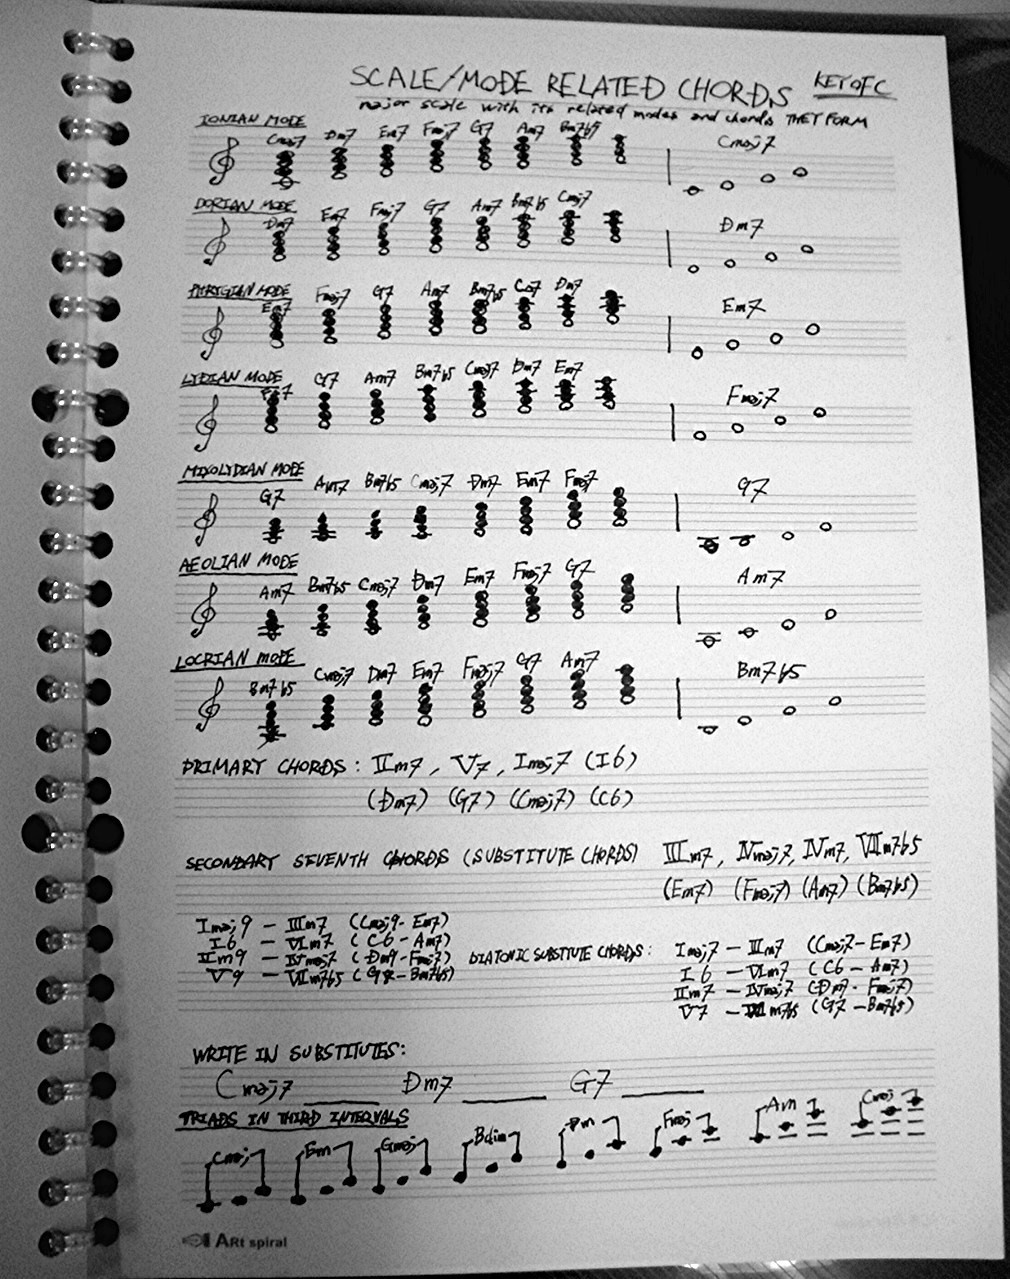 SCALE/MODE RELATED CHORDS KEY OF C
major scale with its related modes and chords THEY FORM
IONIAN MODE
Cmaj7 Dm7 Em7 Fmaj7 G7 Am7 Bm7b5 Cmaj7
DORIAN MODE
Dm7 Em7 Fmaj7 G7 Am7 Bm7b5 Cmaj7 Dm7
PHRYGIAN MODE
Em7 Fmaj7 G7 Am7 Bm7b5 Dm7 Em7
LYDIAN MODE
G7 Am7 Bm7b5 Cmaj7 Dm7 Em7 Fmaj7
MIXOLYDIAN MODE
G7 Am7 Bm7b5 Cmaj7 Dm7 Em7 Fmaj7 G7
AEOLIAN MODE
Am7 Bm7b5 Cmaj7 Dm7 Em7 Fmaj7 G7 Am7
LOCRIAN MODE
Bm7b5 Cmaj7 Dm7 Em7 Fmaj7 G7 Am7 Bm7b5
PRIMARY CHORDS: IIm7, V7, Imaj7 (I6)
(Dm7) (G7) (Cmaj7) (C6)
SECONDARY SEVENTH CHORDS (SUBSTITUTE CHORDS) IIIm7, IVmaj7, VIIm7b5
(Em7) (Fmaj7) (Am7) (Bm7b5)
Imaj9 - IIIm7 (Cmaj9 - Em7)
I6 - VIm7 (C6 - Am7)
IIm9 - IVmaj7 (Dm9 - Fmaj7)
V9 - VIIm7b5 - Bm7b5)
DIATONIC SUBSTITUTE CHORDS: Imaj7 - IIIm7 (Cmaj7 - Em7)
I6 - VIm7 (C6 - Am7)
IIm7 - IVmaj7 (Dm7 - Fmaj7)
V7 - VIIm7b5 (G7 - Bm7b5)
WRITE IN SUBSTITUTES:
Cmaj7 Dm7 G7
TRIADS IN THIRD INTERVALS
Cmaj Em Gmaj Bdim Dm Fmaj Am Cmaj
ARt spiral